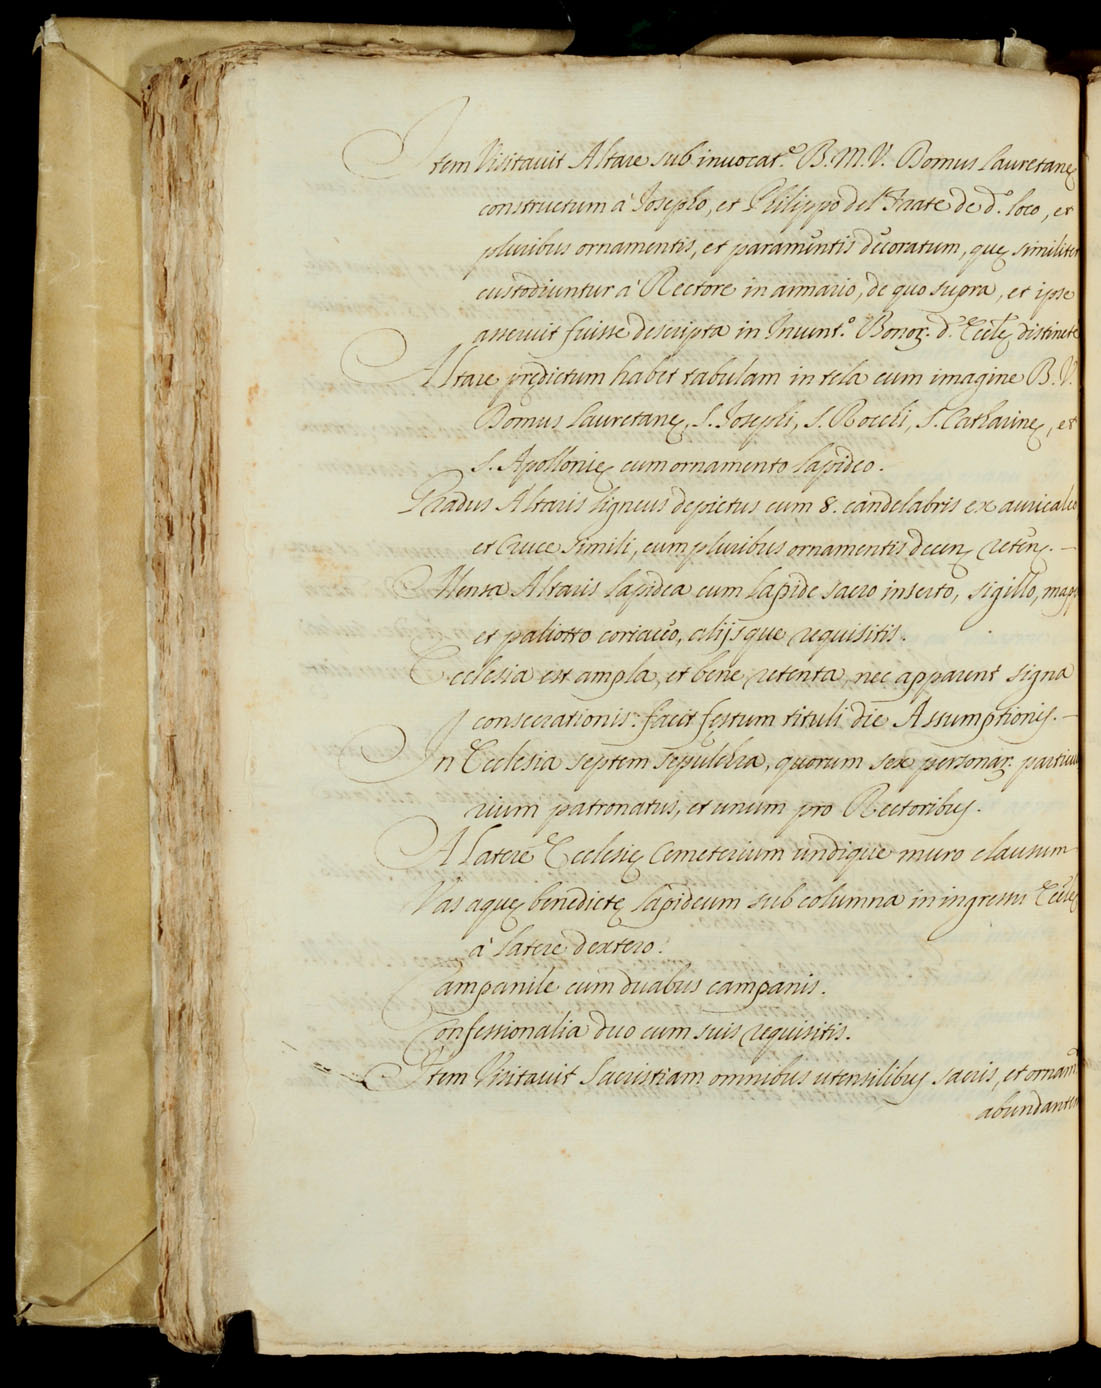 Item Visitauit Altare sub invocat.e B. M. V. Domus Lauretanę
constructum à Josepho, et Philippo del Frate de d.o loco, et
pluribus ornamentis, et paramentis decoratum, quę similiter
custodiuntur à Rectore in armario, de quo supra, et ipse
asseruit fuisse descripta in Inuent.o Bonor. d.ę Ecclę distincte
Altare prędictum habet tabulam in tela cum imagine B. V.
Domus Lauretanę, S. Josephi, S. Rocchi, S. Catharinę, et
S. Apollonię cum ornamento lapideo.
Gradus Altaris ligneus depictus cum 8. candelabris ex auricalco
et Cruce simili, cum pluribus ornamentis decen. reten. –
Mensa Altaris lapidea cum lapide sacro inserto, sigillo, mapp
et paliotto coriaceo, alijsque requisitis.
Ecclesia est ampla, et bene retenta, nec apparent signa
consecrationis: facit festum tituli die Assumptionis. –
In Ecclesia septem sepulchra, quorum sex personar. particu
rium patronatus, et unum pro Rectoribus.
A latere Ecclesię Cemeterium undique muro clausum
Vas aquę benedictę lapideum sub columna in ingressu Ecclę
à latere dextero.
Campanile cum duabus campanis.
Confessionalia duo cum suis requisitis.
Item Visitauit Sacristiam omnibus utensilibus sacris, et ornam
abundantem